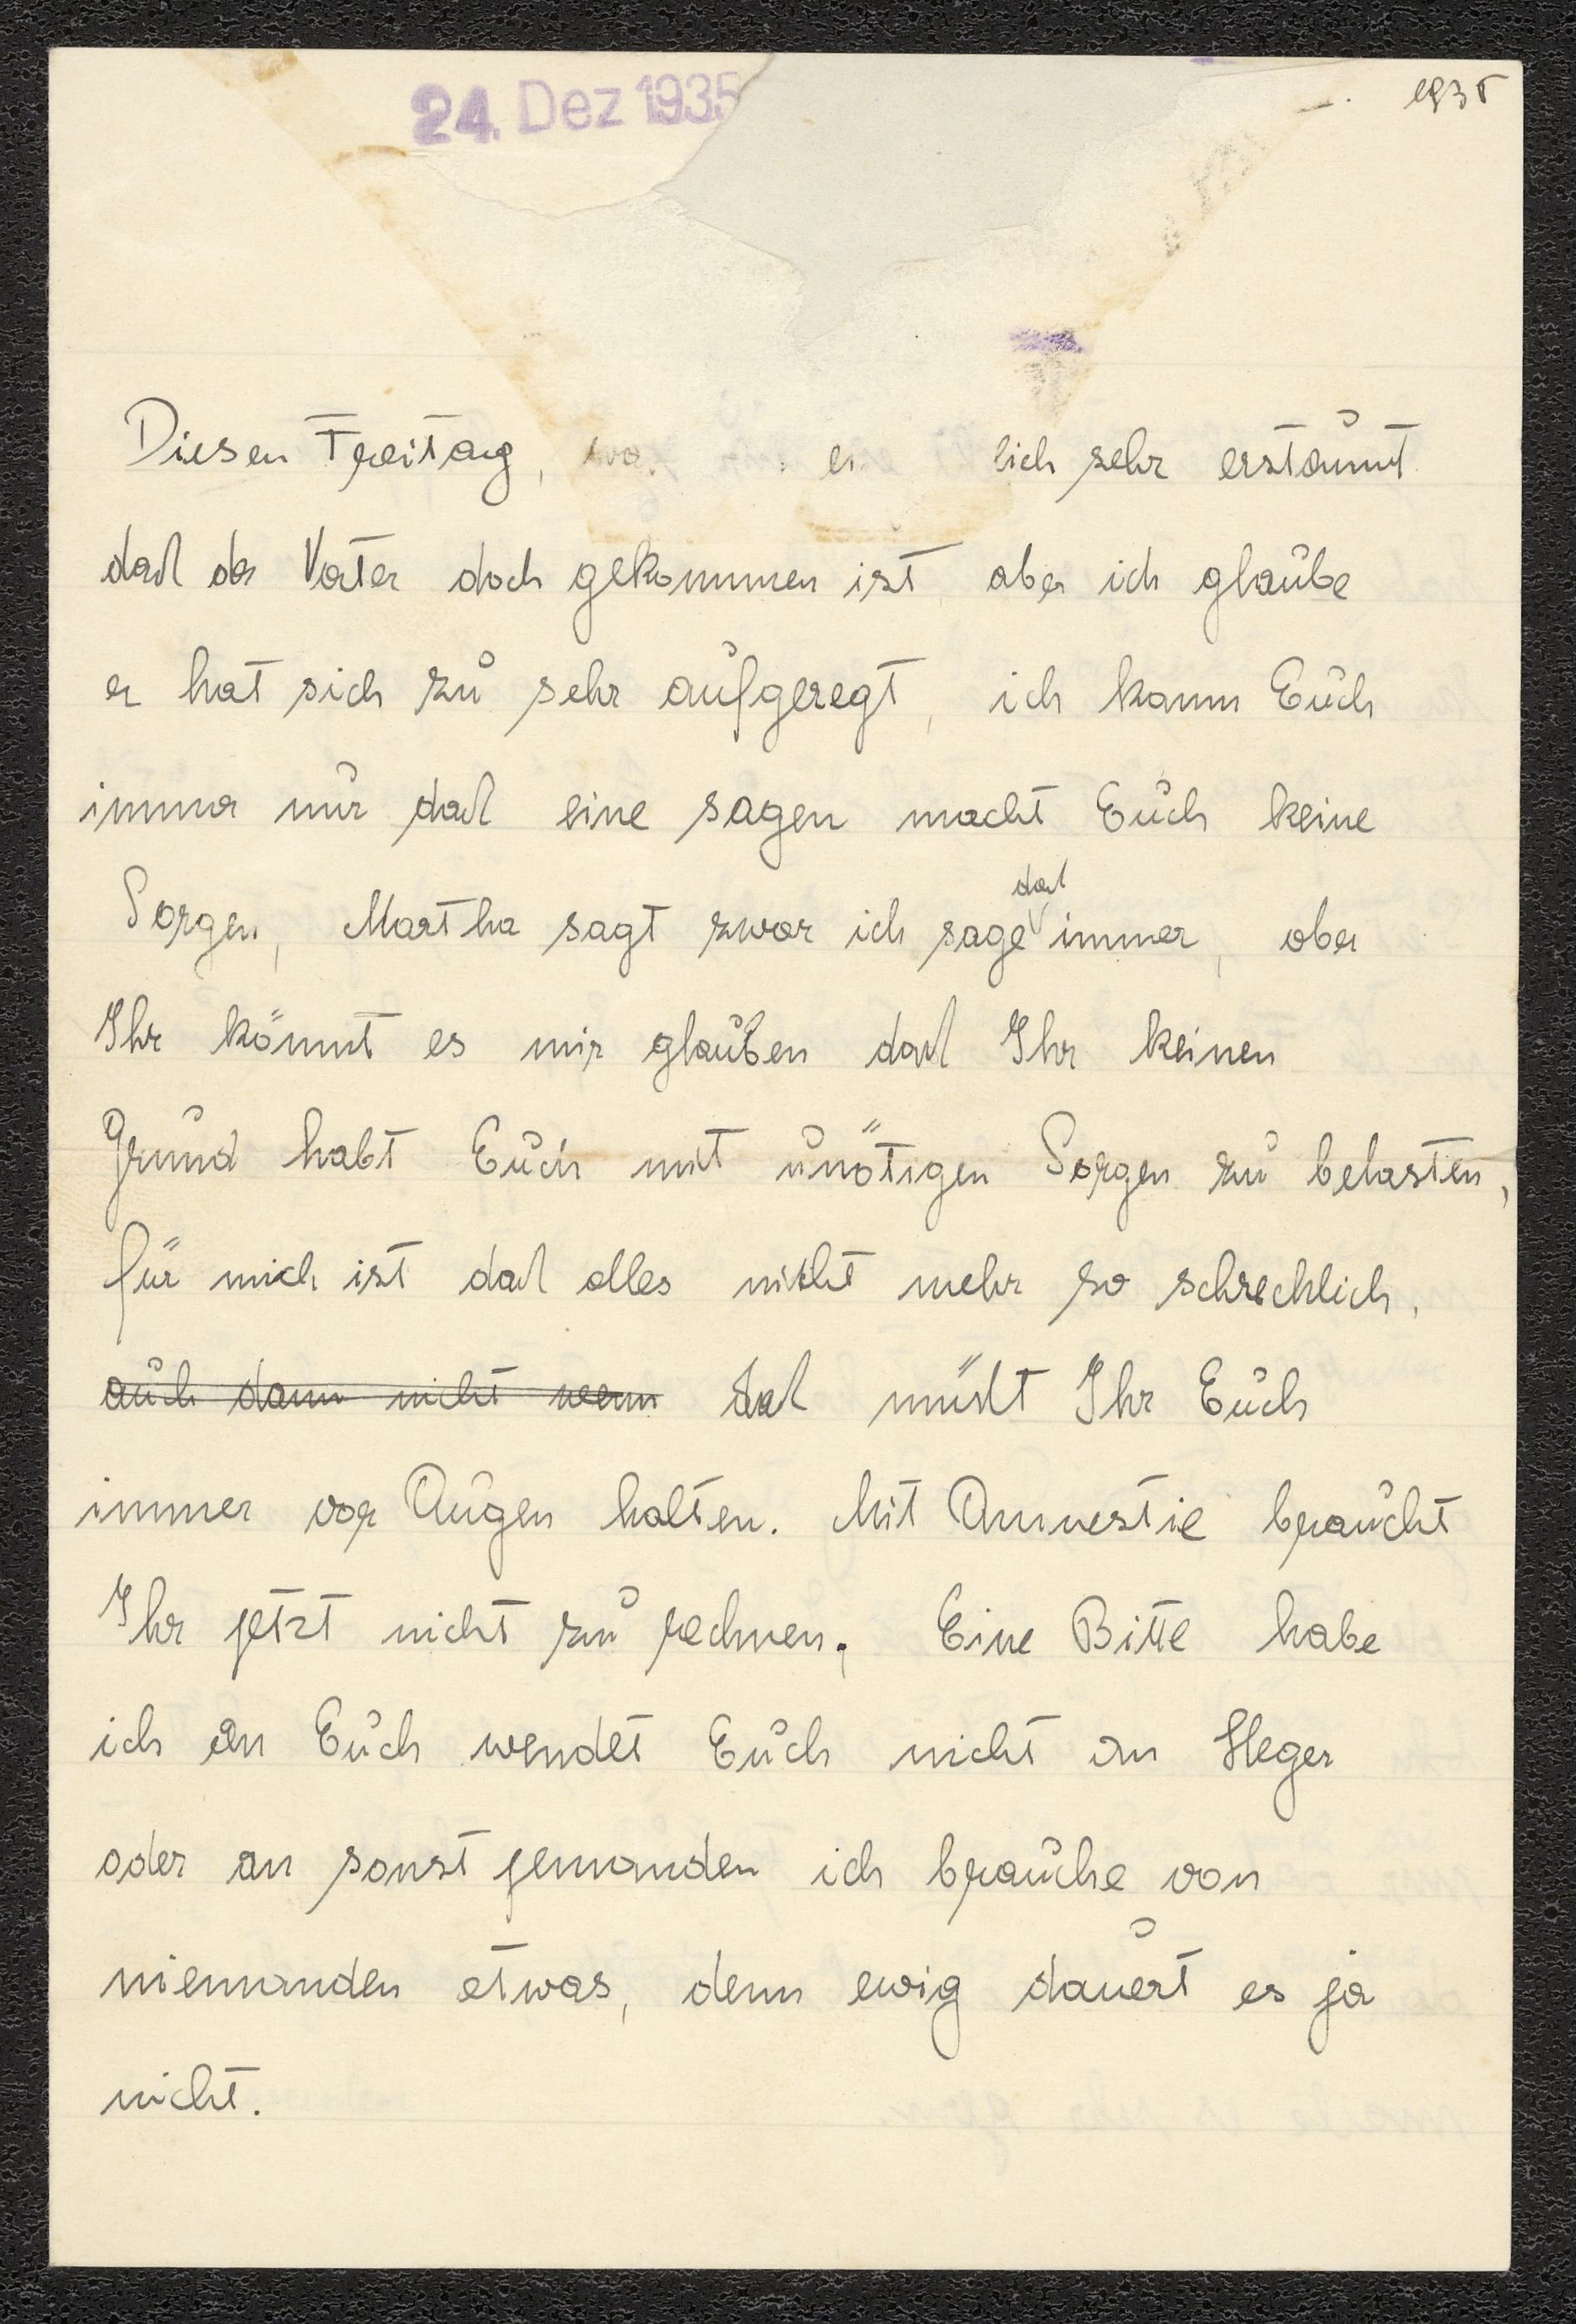 24. Dez 1935
1935
Diesen Freitag, lich sehr erstaunt
daß der Vater doch gekommen ist, aber ich glaube
er hat sich zu sehr aufgeregt, ich kann Euch
immer nur daß eine sagen macht Euch keine
daß
Sorgen, Martha sagt zwar ich sage immer, aber
Ihr könnt es mir glauben daß Ihr keinen
Grund habt Euch mit unötigen Sorgen zu belasten,
für mich ist daß alles nicht mehr so schrecklich,
auch dann nicht wenn daß müßt Ihr Euch
immer vor Augen halten. Mit Amnestie braucht
Ihr jetzt nicht zu rechnen. Eine Bitte habe
ich an Euch wendet Euch nicht an Heger
oder an sonst jemanden ich brauche von
niemanden etwas, denn ewig dauert es ja
nicht.